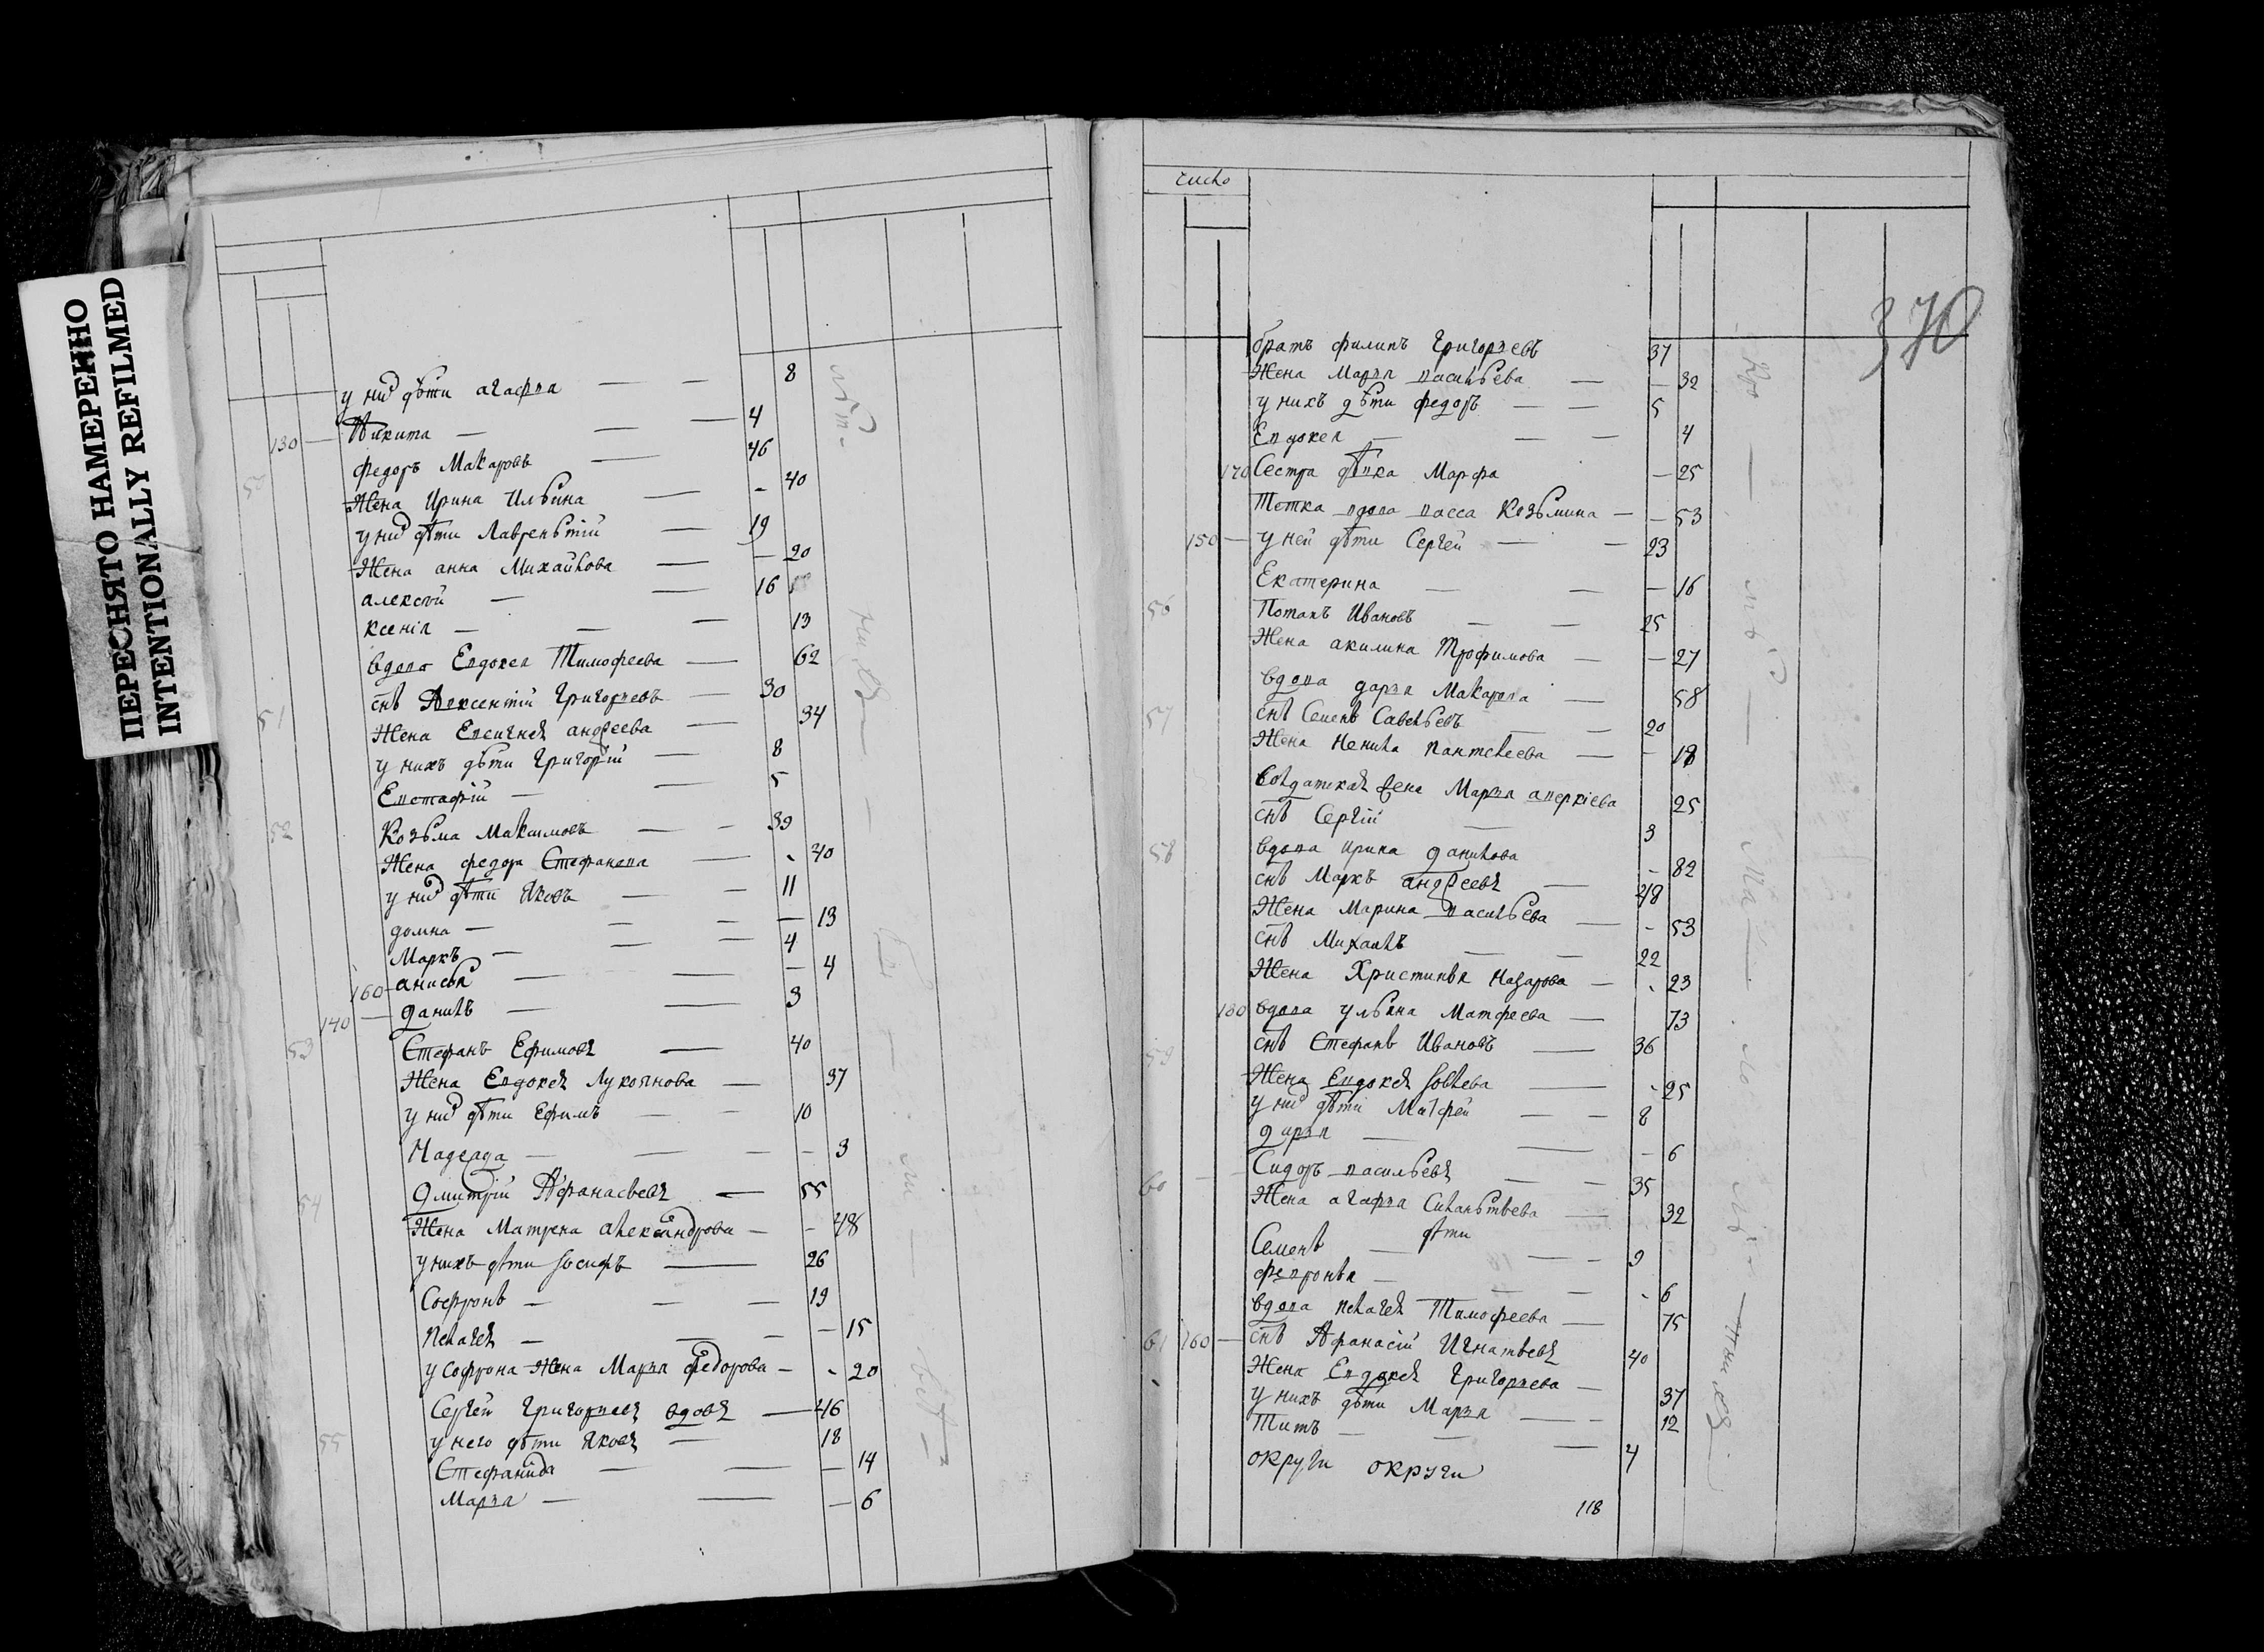 ПЕРЕСНЯТО НАМЕРЕННО
INTENTIONALLY REFILMED
у них дѣти агафья — — 8
130 — Никита — — — 4
50 федоръ Макаровъ — 46
Жена Ирина Ильина — - 40
у них дѣти Лаврентьій — 19
Жена анна Михайлова — — 20
алексѣй — — 16
ксенія — — — 13
вдова Евдокея Тимофеева — 62
51 снъ Авксентій Григорьевъ — 30
Жена Евгеиня андреева — 34
у нихъ дѣти Григорій — 8
Евстафій — — 5
52 Козьма Максимовъ — - 39
Жена федора Стефанова — - 40
у них дѣти Яковъ — - 11
домна — — — — 13
Маркъ — — — 4
160 анисья — — — 4
140 — данилъ — — 3
53 Стефанъ Ефимовъ — 40
Жена Евдокея Лукоянова — 37
у них дѣти Ефимъ — — 10
Надежда — — — - 3
54 Дмитрій Афанасьевъ — 55
Жена Матрена александрова — - 48
у нихъ дѣти Іосифъ — 26
Софронъ — — — 19
Пелагея — — — — 15
у софрона Жена Марья федорова — - 20
55 Сергей Григорьевъ вдовъ — 46
у него дѣти Яковъ — 18
Стефанида — — — 14
Марья — — — 6
число
370
братъ филипъ Григорьевъ 37
Жена Марья васильева — — 32
у нихъ дѣти федоръ — — 5
Евдокея — — — 4
170 Сестра дѣвка Марфа — 25
Тетка вдова васса Козьмина — — 53
150 — у ней дѣти Сергей — — 23
Екатерина — — — 16
56 Потапъ Ивановъ — — 25
Жена акилина Трофимова — — 27
вдова дарья Макарова — 58
57 снъ Семенъ Савельевъ — — 20
Жена Ненила пантелеева — - 18
Солдатская жена Марья аверкіева 25
снъ Сергій — 3
58 вдова ирина данилова - 82
снъ Маркъ андреевъ — 48
Жена Марина васильева — - 53
снъ Михаилъ — — 22
Жена Христинья Назарова — - 23
180 вдова ульяна Матфеева — 73
59 снъ Стефанъ Ивановъ — 36
Жена Евдокея Іовлева — - 25
у них дѣти Матфей — — 8
дарья — — - 6
60 Сидоръ васильевъ — — 35
Жена агафья Силантьева — 32
дѣти
Семенъ — — — 9
февронья — — — - 6
вдова пелагея Тимофеева — 75
61 160 — снъ Афанасій Игнатьевъ 40
Жена Евдокея Григорьева — 37
у нихъ дѣти Марья — — 12
Титъ — — — 4
округи округи
118